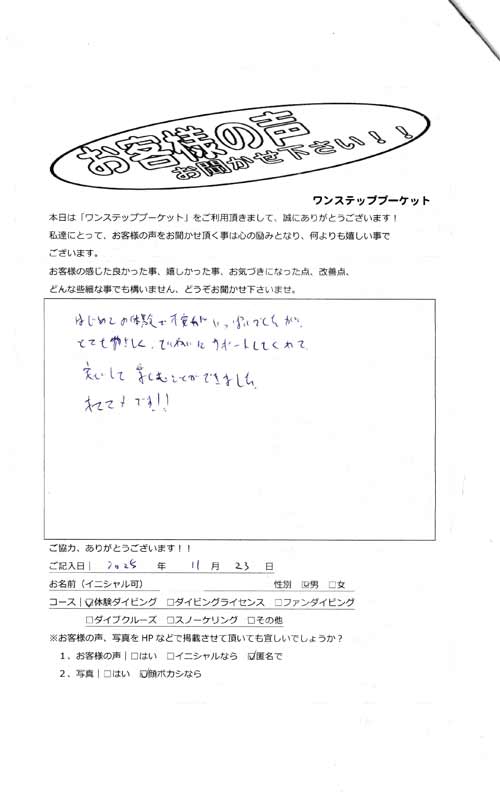 お客様の声
お聞かせ下さい！！
ワンステッププーケット
本日は「ワンステッププーケット」をご利用頂きまして、誠にありがとうございます！
私達にとって、お客様の声をお聞かせ頂く事は心の励みとなり、何よりも嬉しい事で
ございます。
お客様の感じた良かった事、嬉しかった事、お気づきになった点、改善点、
どんな些細な事でも構いません、どうぞお聞かせ下さいませ。
はじめての体験で不安がいっぱいでしたが、
とても優しく、ていねいにサポートしてくれて
安心して楽しむことができました。
です!!
ご協力、ありがとうございます！！
ご記入日｜2025 年 11 月 23 日
お名前（イニシャル可） 性別 ☑男 □女
コース｜☑体験ダイビング □ダイビングライセンス □ファンダイビング
□ダイブクルーズ □スノーケリング □その他
※お客様の声、写真を HP などで掲載させて頂いても宜しいでしょうか？
１．お客様の声｜□はい □イニシャルなら ☑匿名で
２．写真｜□はい ☑顔ボカシなら